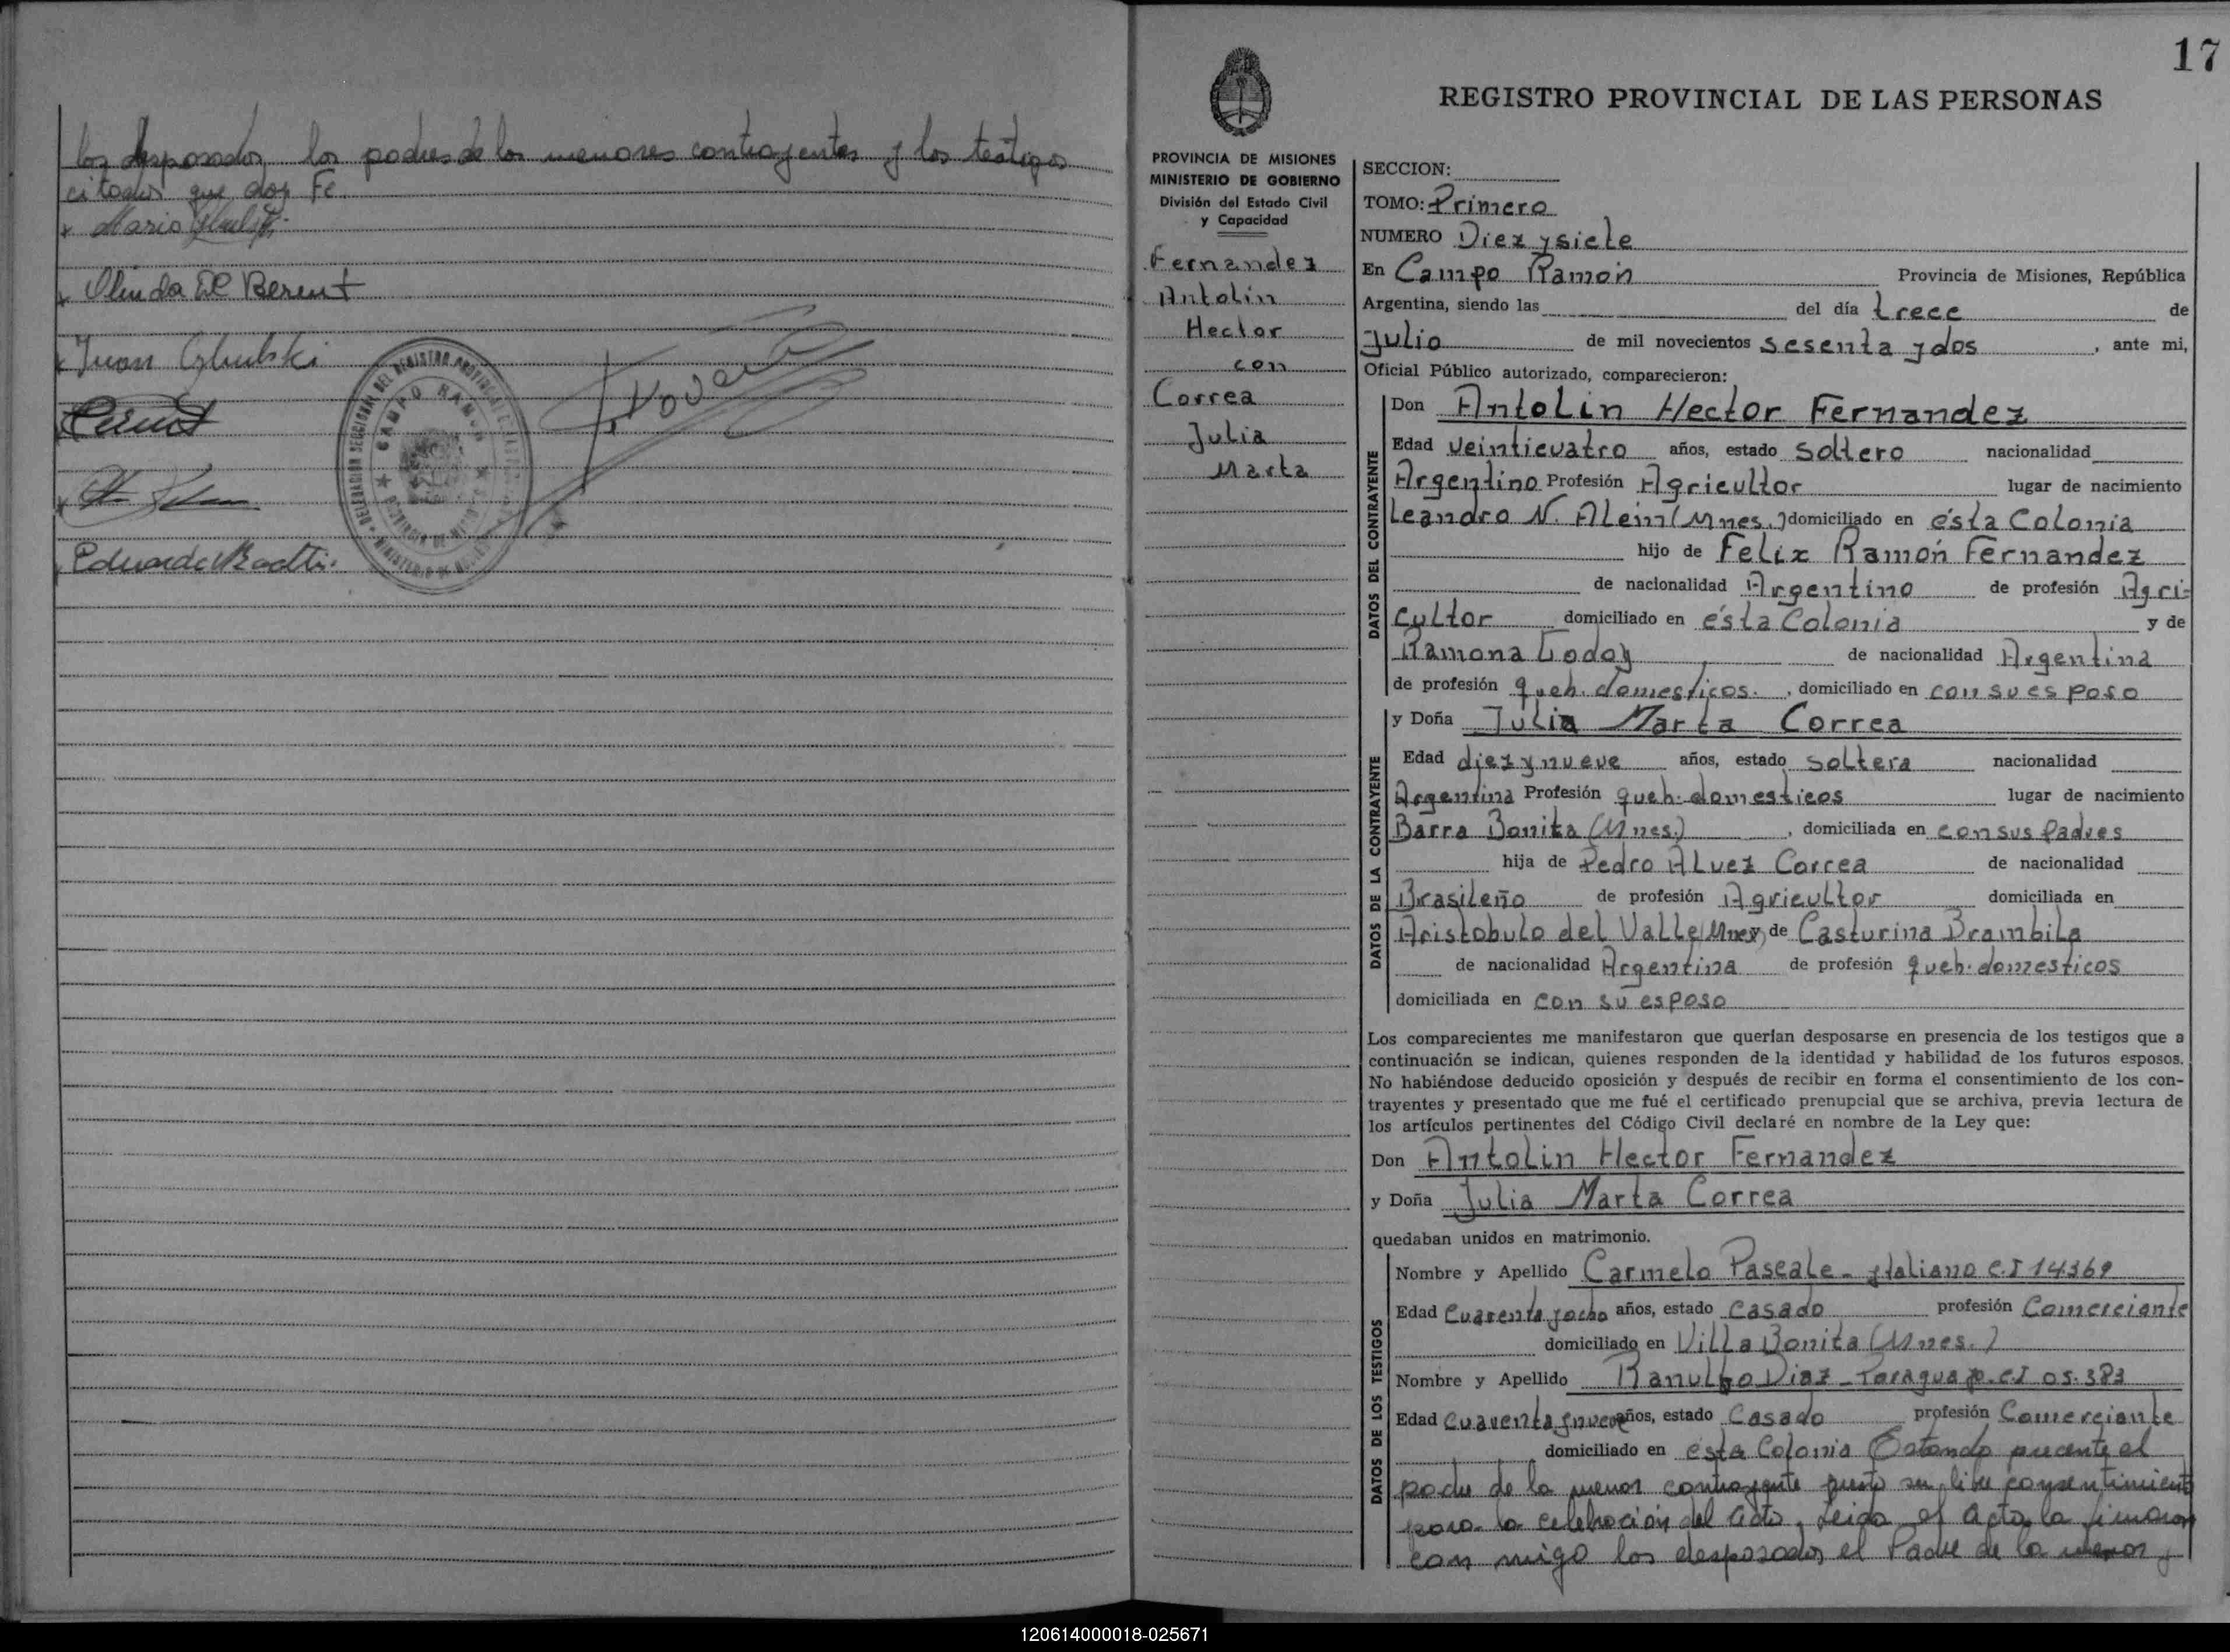 los desposados los padres de los menores contrayentes y los testigos
citados que doy Fe.
x Mario
x Olinda de Berent
x Juan Glubski
Berent
Eduardo
DELEGACION SECCIONAL DEL REGISTRO PROVINCIAL DE LAS
CAMPO RAMON
17
REGISTRO PROVINCIAL DE LAS PERSONAS
PROVINCIA DE MISIONES
MINISTERIO DE GOBIERNO
División del Estado Civil
y Capacidad
Fernandez
Antolin
Hector
con
Correa
Julia
Marta
SECCION:
TOMO: Primero
NUMERO Diez y siete
En Campo Ramón Provincia de Misiones, República
Argentina, siendo las del día trece de
Julio de mil novecientos sesenta y dos , ante mi,
Oficial Público autorizado, comparecieron:
DATOS DEL CONTRAYENTE
Don Antolin Hector Fernandez
Edad veinticuatro años, estado soltero nacionalidad
Argentino Profesión Agricultor lugar de nacimiento
Leandro N. Alem (Mnes.) domiciliado en ésta Colonia
hijo de Felix Ramón Fernandez
de nacionalidad Argentino de profesión Agri-
cultor domiciliado en ésta Colonia y de
Ramona Godoy de nacionalidad Argentina
de profesión queh. domesticos. , domiciliado en con su esposo
DATOS DE LA CONTRAYENTE
y Doña Julia Marta Correa
Edad diez y nueve años, estado soltera nacionalidad
Argentina Profesión queh. domesticos lugar de nacimiento
Barra Bonita (Mnes.) , domiciliada en con sus Padres
hija de Pedro Aluez Correa de nacionalidad
Brasileño de profesión Agricultor domiciliada en
Aristobulo del Valle (Mnes) y de Casturina Brambila
de nacionalidad Argentina de profesión queh. domesticos
domiciliada en con su esposo
Los comparecientes me manifestaron que querían desposarse en presencia de los testigos que a
continuación se indican, quienes responden de la identidad y habilidad de los futuros esposos.
No habiéndose deducido oposición y después de recibir en forma el consentimiento de los con-
trayentes y presentado que me fué el certificado prenupcial que se archiva, previa lectura de
los artículos pertinentes del Código Civil declaré en nombre de la Ley que:
Don Antolin Hector Fernandez
y Doña Julia Marta Correa
quedaban unidos en matrimonio.
DATOS DE LOS TESTIGOS
Nombre y Apellido Carmelo Pascale - ytaliano C.I 14369
Edad Cuarenta y ocho años, estado Casado profesión Comerciante
domiciliado en Villa Bonita (Mnes.)
Nombre y Apellido Ranulfo Diaz - Paraguayo. C.I 05.383
Edad Cuarenta y nueve años, estado Casado profesión Comerciante
domiciliado en ésta Colonia Estando precente el
padre de la menor contrayente presto su libre consentimiento
para la celebración del acto, Leida el acta la firmaron
con migo los desposados el Padre de la menor y
120614000018-025671